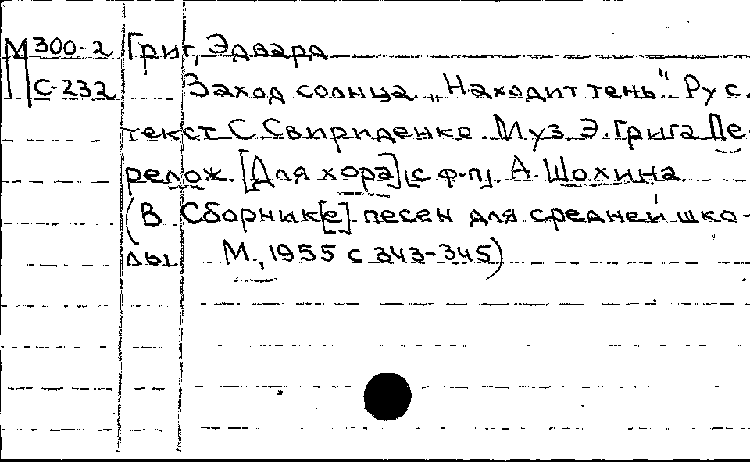 М 300-2 Григ, Эдвард
С-232 Заход солнца. „Находит тень". Рус.
текст С. Свириденко. Муз. Э. Грига. Пе-
релож. [Для хора] [с ф-п] А. Шохина
(В Сборник[е] песен для средней шко-
лы. М., 1955 с 343-345)